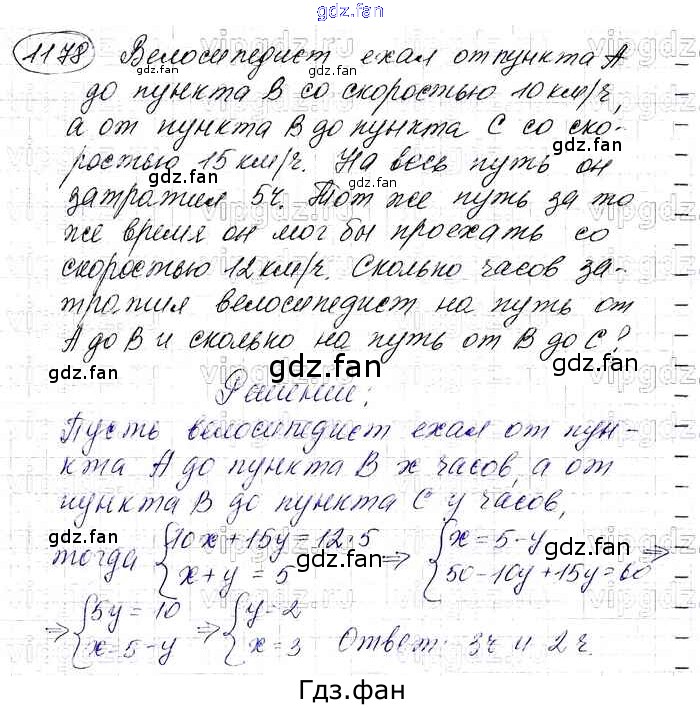 gdz.fan
1178 Велосипедист ехал от пункта А
до пункта В со скоростью 10 км/ч,
а от пункта В до пункта С со ско-
ростью 15 км/ч. На весь путь он
затратил 5ч. Тот же путь за то
же время он мог бы проехать со
скоростью 12 км/ч. Сколько часов за-
тратил велосипедист на путь от
А до В и сколько на путь от В до С?
Решение:
Пусть велосипедист ехал от пун-
кта А до пункта В x часов, а от
пункта В до пункта С y часов,
тогда {10x+15y=12·5 x+y=5 => {x=5-y 50-10y+15y=60 =>
=> {5y=10 x=5-y => {y=2 x=3 Ответ: 3ч и 2ч.
Гдз.фан